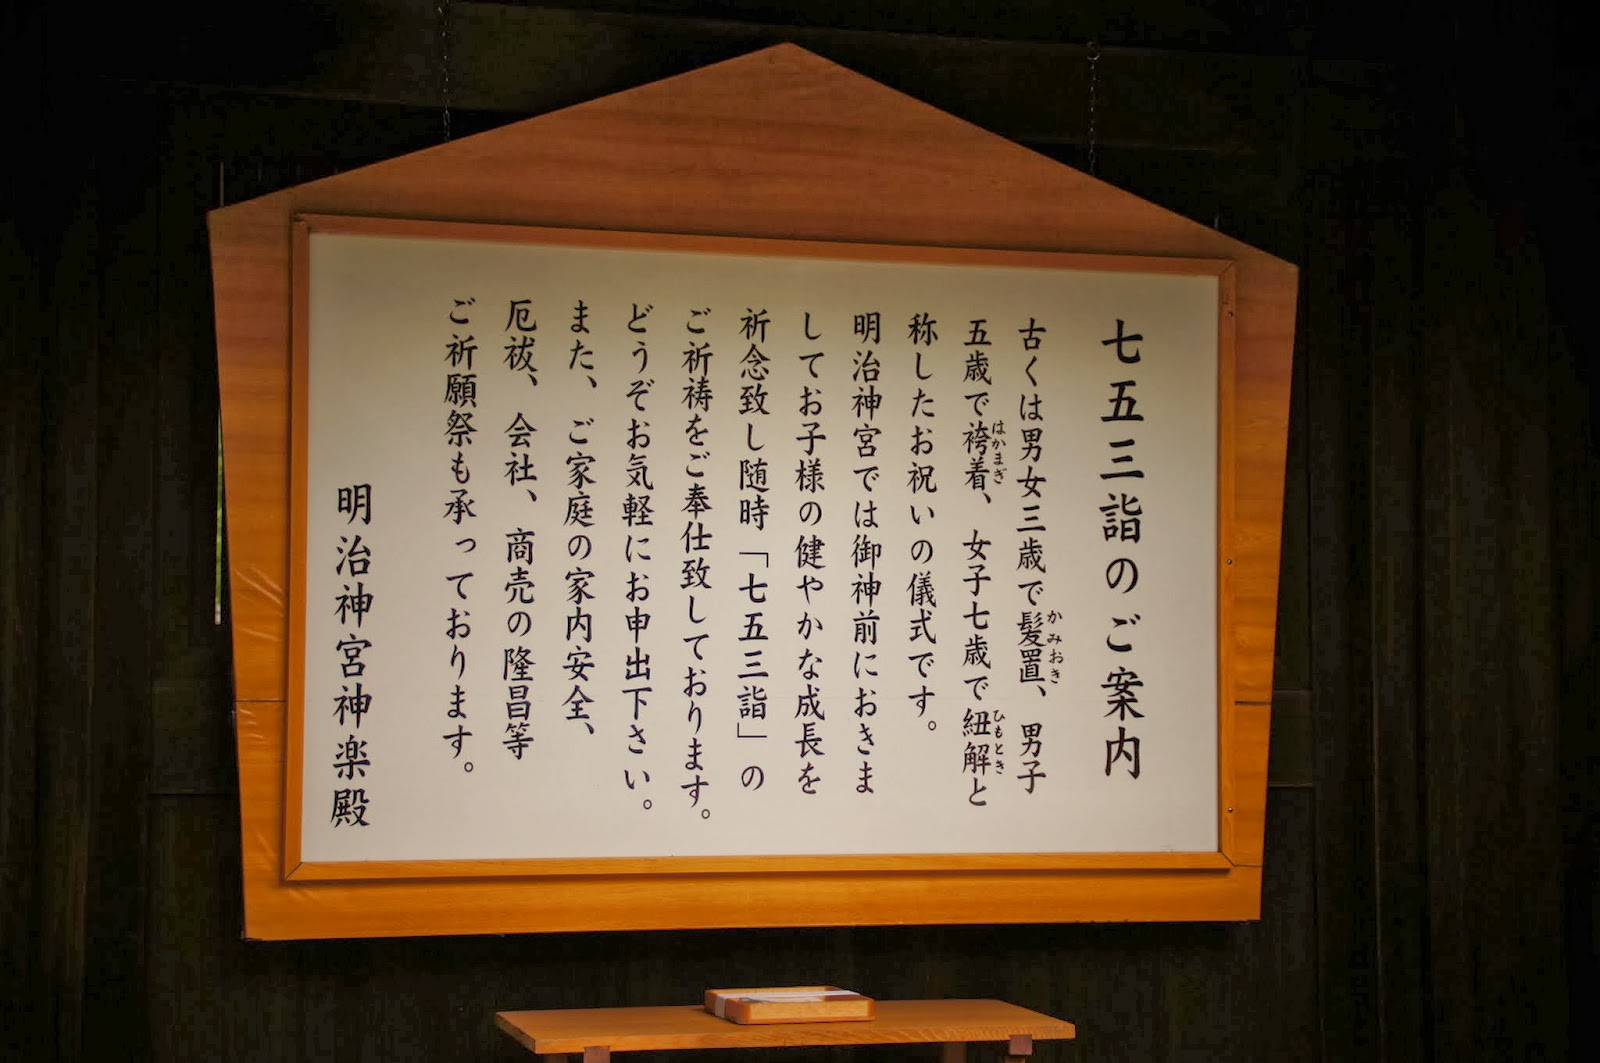 七五三詣のご案内
古くは男女三歳で髪置、男子
かみおき
五歳で袴着、女子七歳で紐解と
はかまぎ
ひもとき
称したお祝いの儀式です。
明治神宮では御神前におきま
してお子様の健やかな成長を
祈念致し随時「七五三詣」の
ご祈祷をご奉仕致しております。
どうぞお気軽にお申出下さい。
また、ご家庭の家内安全、
厄祓、会社、商売の隆昌等
ご祈願祭も承っております。
明治神宮神楽殿